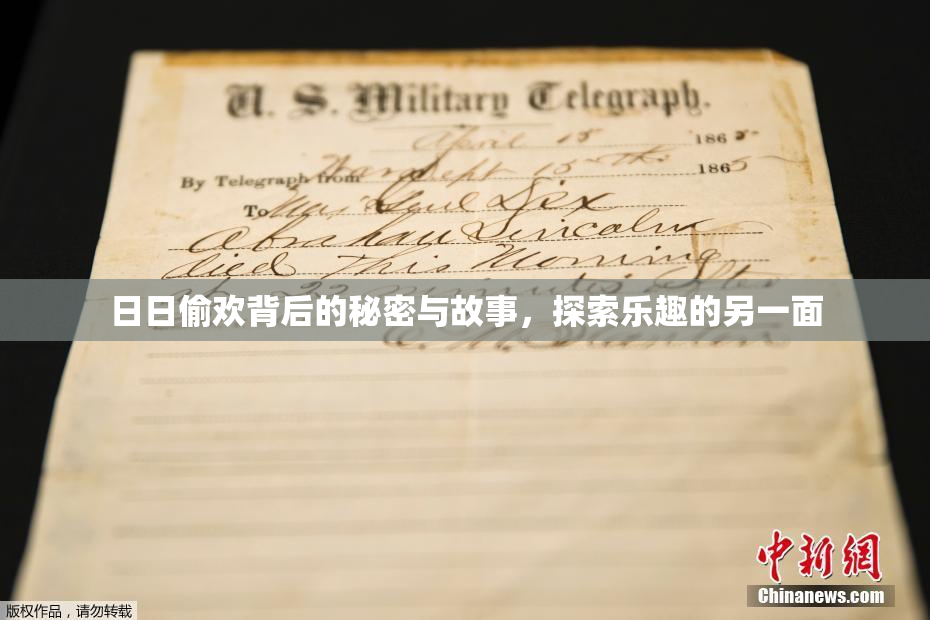 U. S. Military Telegraph.
April 15 1865
By Telegraph from War Dept 15th 1865
To Maj Genl Dix
Abraham Lincoln
died this Morning
at 22 minutes after
日日偷欢背后的秘密与故事，探索乐趣的另一面
E. M. Stanton
中新網
Chinanews.com
版权作品，请勿转载